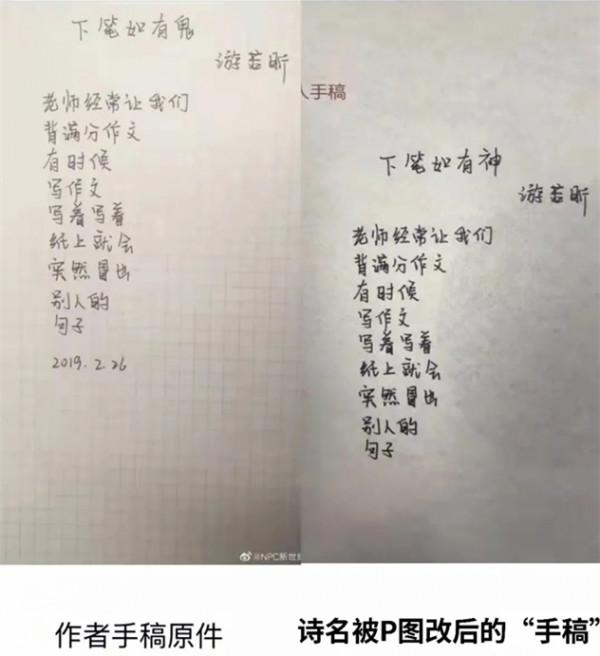 下笔如有鬼
游若昕
老师经常让我们
背满分作文
有时候
写作文
写着写着
纸上就会
突然冒出
别人的
句子
2019.2.26
@NPC新世纪
人手稿
下笔如有神
游若昕
老师经常让我们
背满分作文
有时候
写作文
写着写着
纸上就会
突然冒出
别人的
句子
作者手稿原件
诗名被P图改后的“手稿”